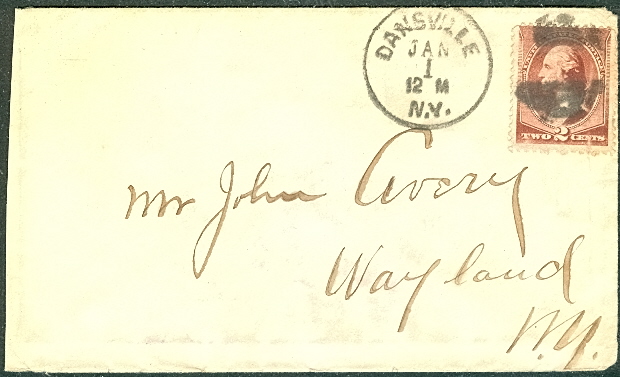 DANSVILLE
JAN
1
12 M
N.Y.
TWO 2 CENTS
Mr John Avery
Wayland
N.Y.